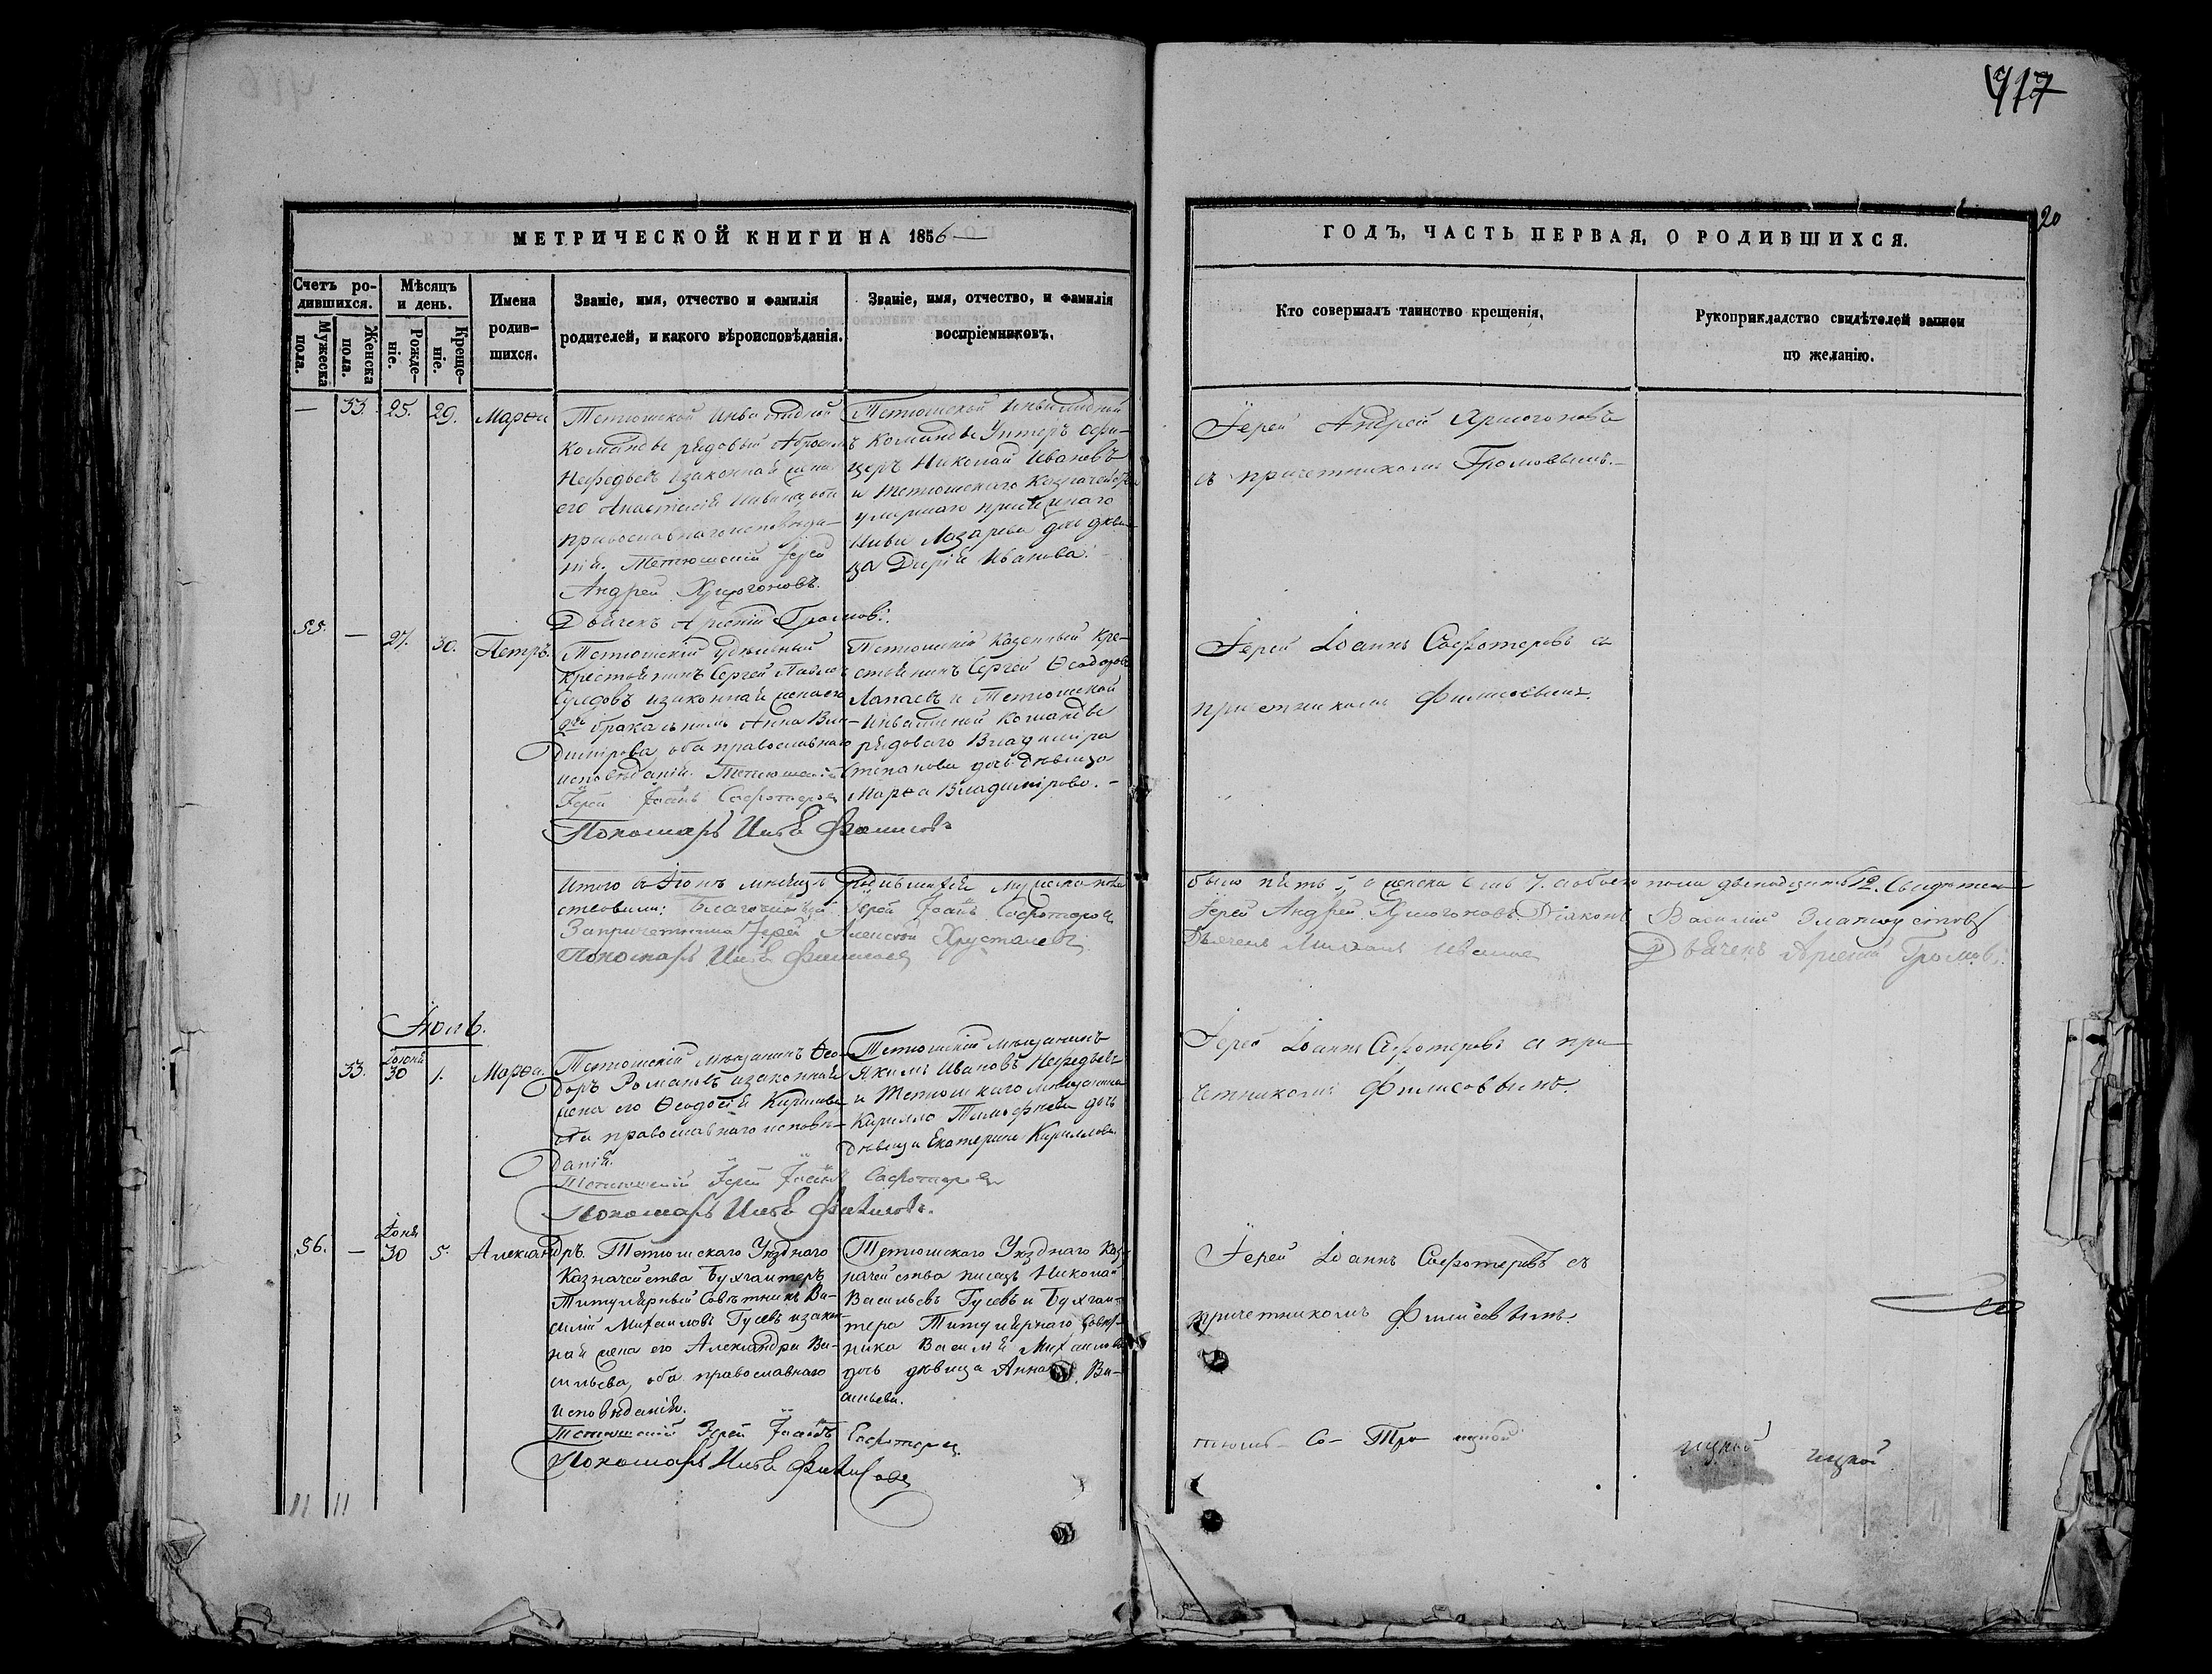 717
20
МЕТРИЧЕСКОЙ КНИГИ НА 1856
ГОДЪ, ЧАСТЬ ПЕРВАЯ, О РОДИВШИХСЯ.
Счетъ ро-
дившихся.
Мужеска
пола.
Женска
пола.
Мѣсяцъ
и день.
Рожде-
ніе.
Креще-
ніе.
Имена
родив-
шихся.
Званіе, имя, отчество и фамилія
родителей, и какого вѣроисповѣданія.
Званіе, имя, отчество, и фамилія
воспріемниковъ.
Кто совершалъ таинство крещенія,
Рукоприкладство свидѣтелей записи
по желанію.
— 33. 25. 29. Марѳа
Тетюшской Инвалидной
команды рядовый
Нефедьевъ и законная жена
его Анастасія оба
православнаго исповѣда-
нія. Тетюшскій Іерей
Андрей
Дьячекъ Арсеній Громовъ.
Тетюшской Инвалидной
команды Унтеръ офи-
церъ Николай Ивановъ
и Тетюшскаго Казначейства
умершаго присяжнаго
Ивана Лазарева дочь дѣви-
ца Дарія Иванова.
Іерей Андрей
съ причетникомъ Громовымъ.
55. — 27. 30. Петръ.
Тетюшскій удѣльный
крестьянинъ Сергей Павловъ
и законная жена его
2мъ бракомъ Анна Вла-
димірова, оба православнаго
исповѣданія. Тетюшскій
Іерей Іоаннъ Сафотеровъ
Пономарь Илья Филисовъ
Тетюшскій казенный кре-
стьянинъ Сергей Ѳеодоровъ
Лапаевъ и Тетюшской
Инвалидной команды
рядоваго Владиміра
Степанова дочь дѣвица
Марѳа Владимірова.
Іерей Іоаннъ Сафотеровъ съ
причетникомъ Филисовымъ.
Итого въ Іюнѣ мѣсяцѣ родившихся мужеска пола
было пять 5, а женска семь 7. а обоего пола двенадцать 12. Свидѣтель-
ствовали: Благочинный Іерей Іоаннъ Сафотеровъ
Іерей Андрей Діаконъ Василій Златоустовъ
За причетника Іерей Алексѣй Хрусталевъ
Дьячекъ Михаилъ Ивановъ
Дьячекъ Арсеній Громовъ.
Пономарь Илья Филисовъ
Іюль.
33. Іюня 30 1. Марѳа.
Тетюшскій мѣщанинъ Ѳео-
доръ Романовъ и законная
жена его Ѳеодосія Кирилова
оба православнаго исповѣ-
данія.
Тетюшскій Іерей Іоаннъ Сафотеровъ
Пономарь Илья Филисовъ.
Тетюшскій мѣщанинъ
Якимъ Ивановъ Нефедьевъ
и Тетюшскаго мѣщанина
Кирилла Тимофѣева дочь
дѣвица Екатерина Кириллова.
Іерей Іоаннъ Сафотеровъ съ при-
четникомъ Филисовымъ.
56. — Іюня 30 5. Александръ.
Тетюшскаго Уѣзднаго
Казначейства Бухгалтеръ
Титулярный Совѣтникъ Ва-
силій Михаиловъ Гусевъ и закон-
ная жена его Александра Ва-
сильева, оба православнаго
исповѣданія.
Тетюшскій Іерей Іоаннъ Сафотеровъ
Пономарь Илья Филисовъ
Тетюшскаго Уѣзднаго Каз-
начейства писецъ Николай
Васильевъ Гусевъ и Бухгал-
тера Титулярнаго Совѣт-
ника Василія Михаилова
дочь дѣвица Анна Ва-
сильева.
Іерей Іоаннъ Сафотеровъ съ
причетникомъ Филисовымъ.
тюшъ Со- Тро- ицкой
ицкой
ицкой
11 11